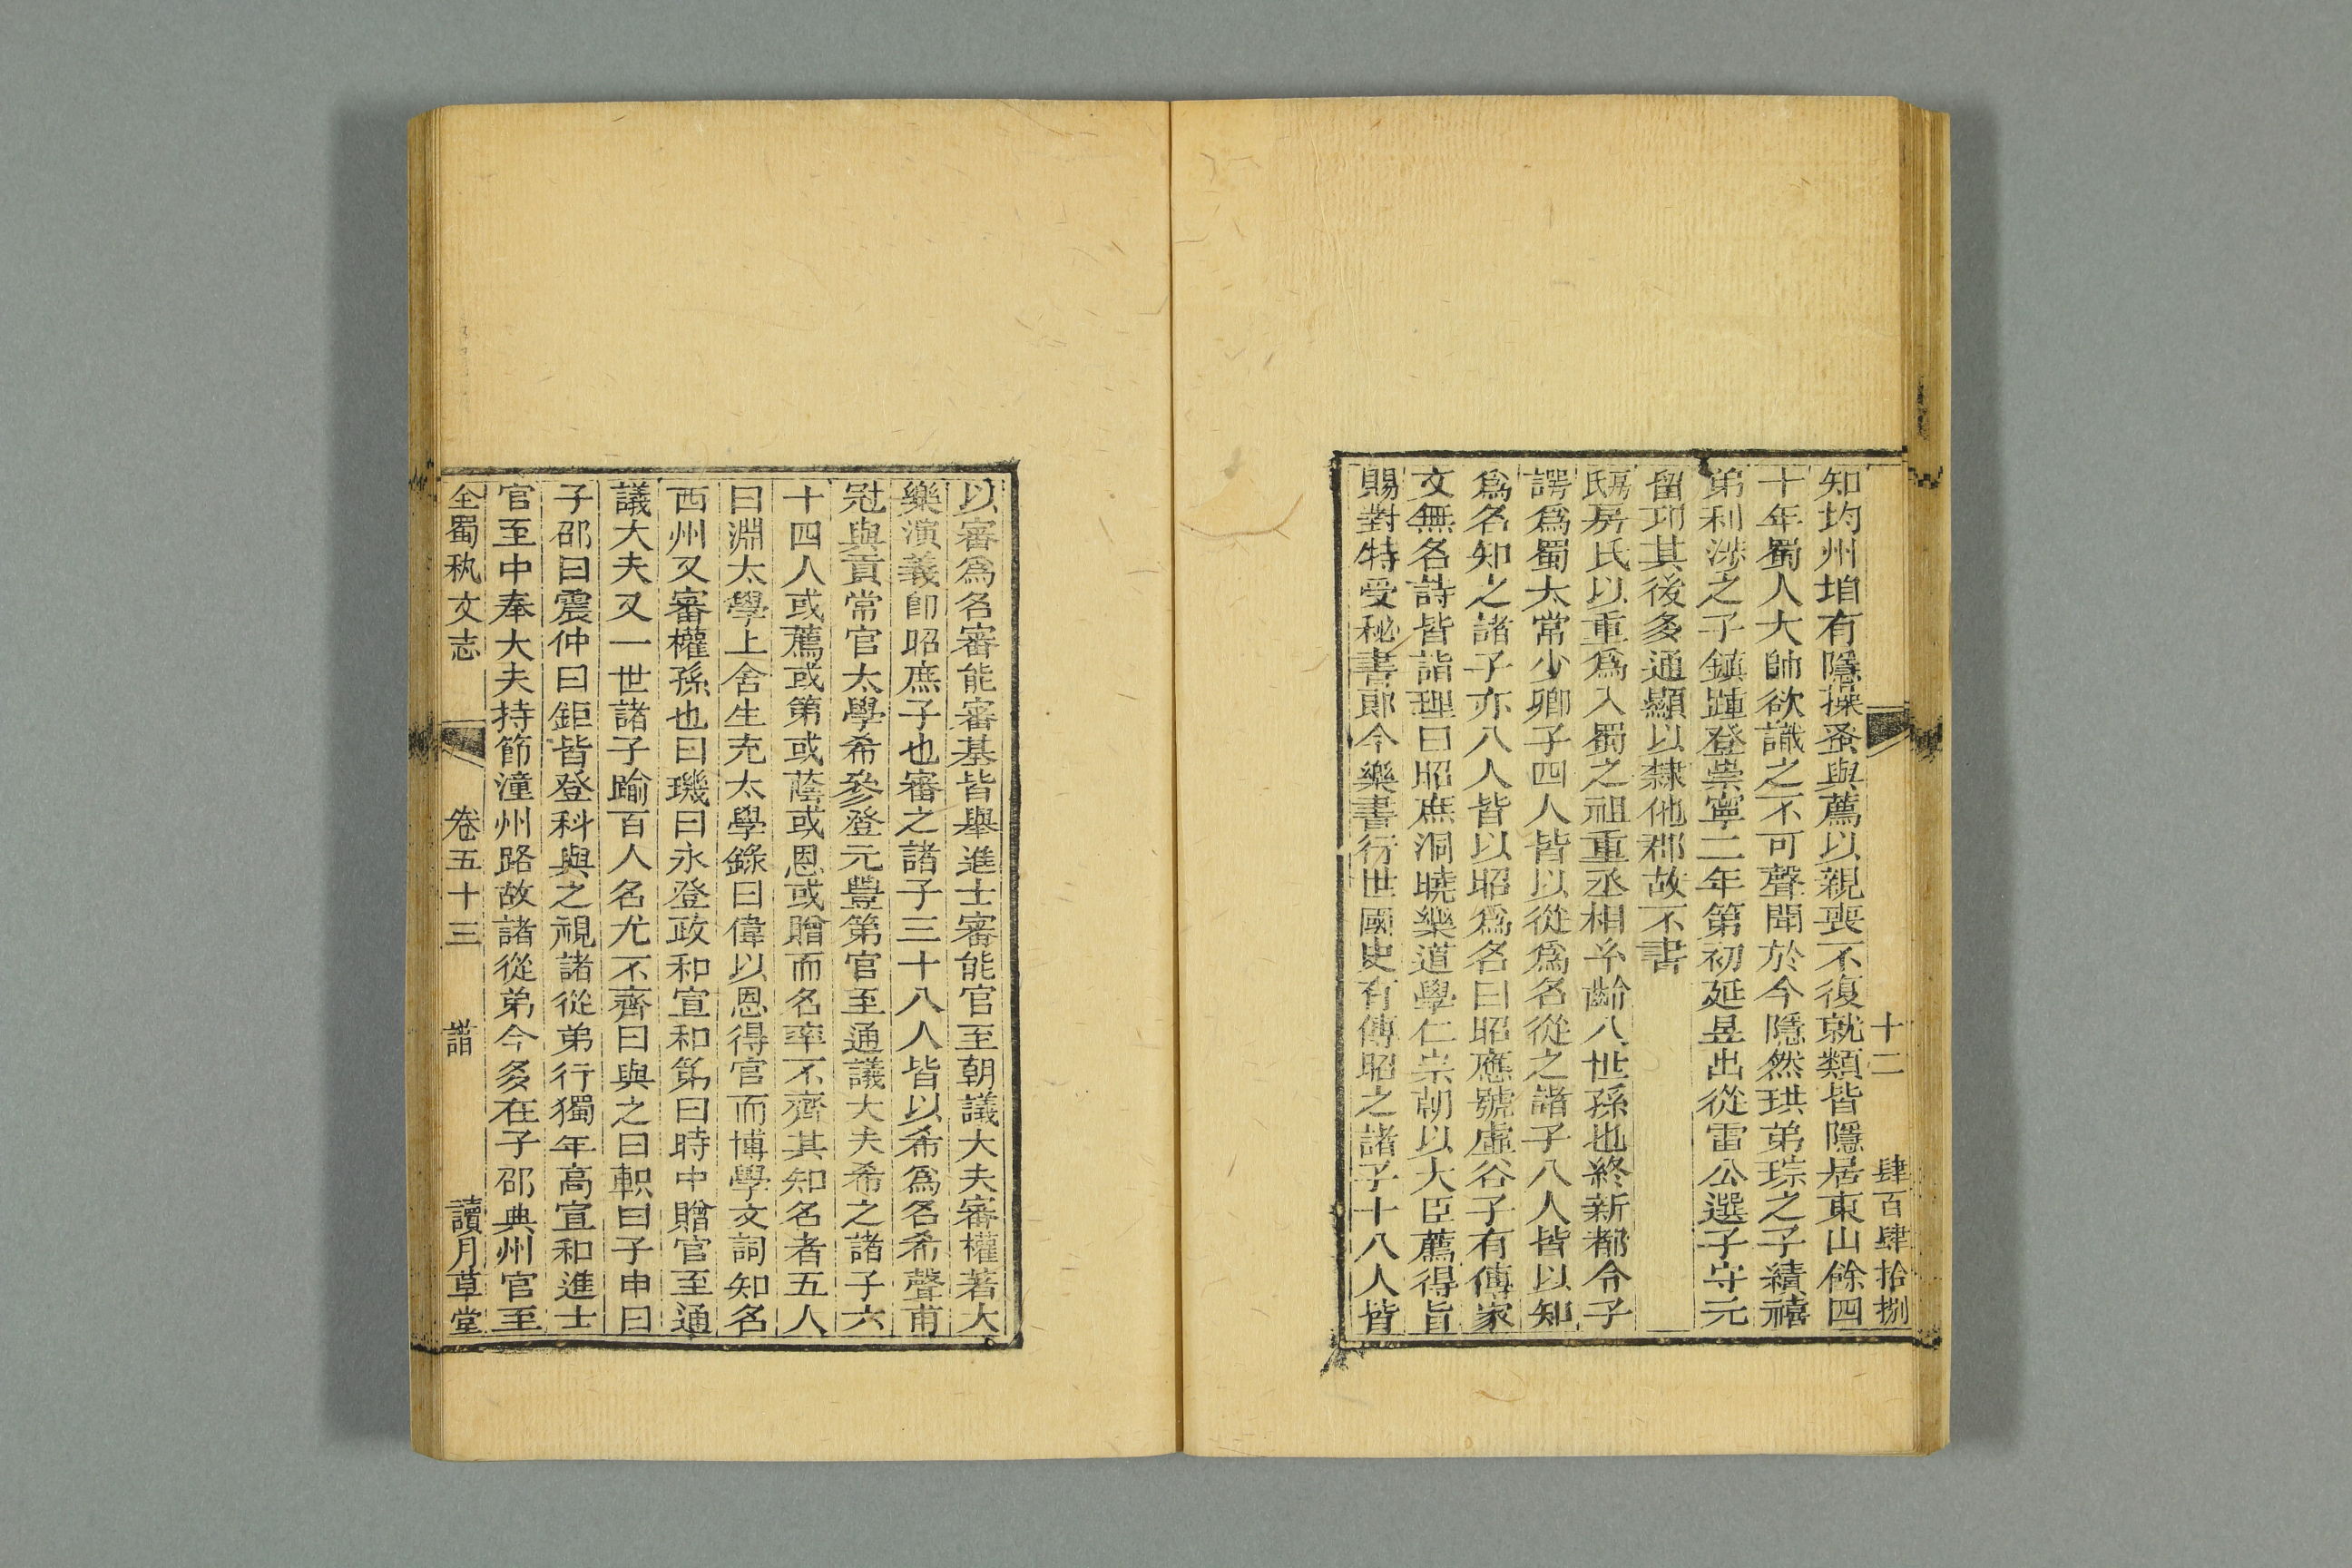 十二 肆百肆拾捌
知均州垍有隱操蚤與薦以親喪不復就類皆隱居東山餘四
十年蜀人大帥欲識之不可聲聞於今隱然珙弟琮之子績禧
弟利渉之子鎮踵登崇寧二年第初延昱出從雷公選子守元
留卭其後多通顯以隸他郡故不書
房氏房氏以重爲入蜀之祖重丞相千齡八世孫也終新都令子
諤爲蜀太常少卿子四人皆以從爲名從之諸子八人皆以知
爲名知之諸子亦八人皆以昭爲名曰昭應號虛谷子有傳家
文無名詩皆詣理曰昭庶洞曉樂道學仁宗朝以大臣薦得旨
賜對特受秘書郎今樂書行世國史有傳昭之諸子十八人皆
以審爲名審能審基皆舉進士審能官至朝議大夫審權著大
樂演義卽昭庶子也審之諸子三十八人皆以希爲名希聲甫
冠與貢常官太學希參登元豐第官至通議大夫希之諸子六
十四人或薦或第或蔭或恩或贈而名率不齊其知名者五人
曰淵太學上舍生充太學錄曰偉以恩得官而博學文詞知名
西州又審權孫也曰璣曰永登政和宣和第曰時中贈官至通
議大夫又一世諸子踰百人名尤不齊曰與之曰軹曰子申曰
子邵曰震仲曰鉅皆登科與之視諸從弟行獨年高宣和進士
官至中奉大夫持節潼州路故諸從弟今多在子邵典州官至
全蜀秇文志 卷五十三 譜 讀月草堂